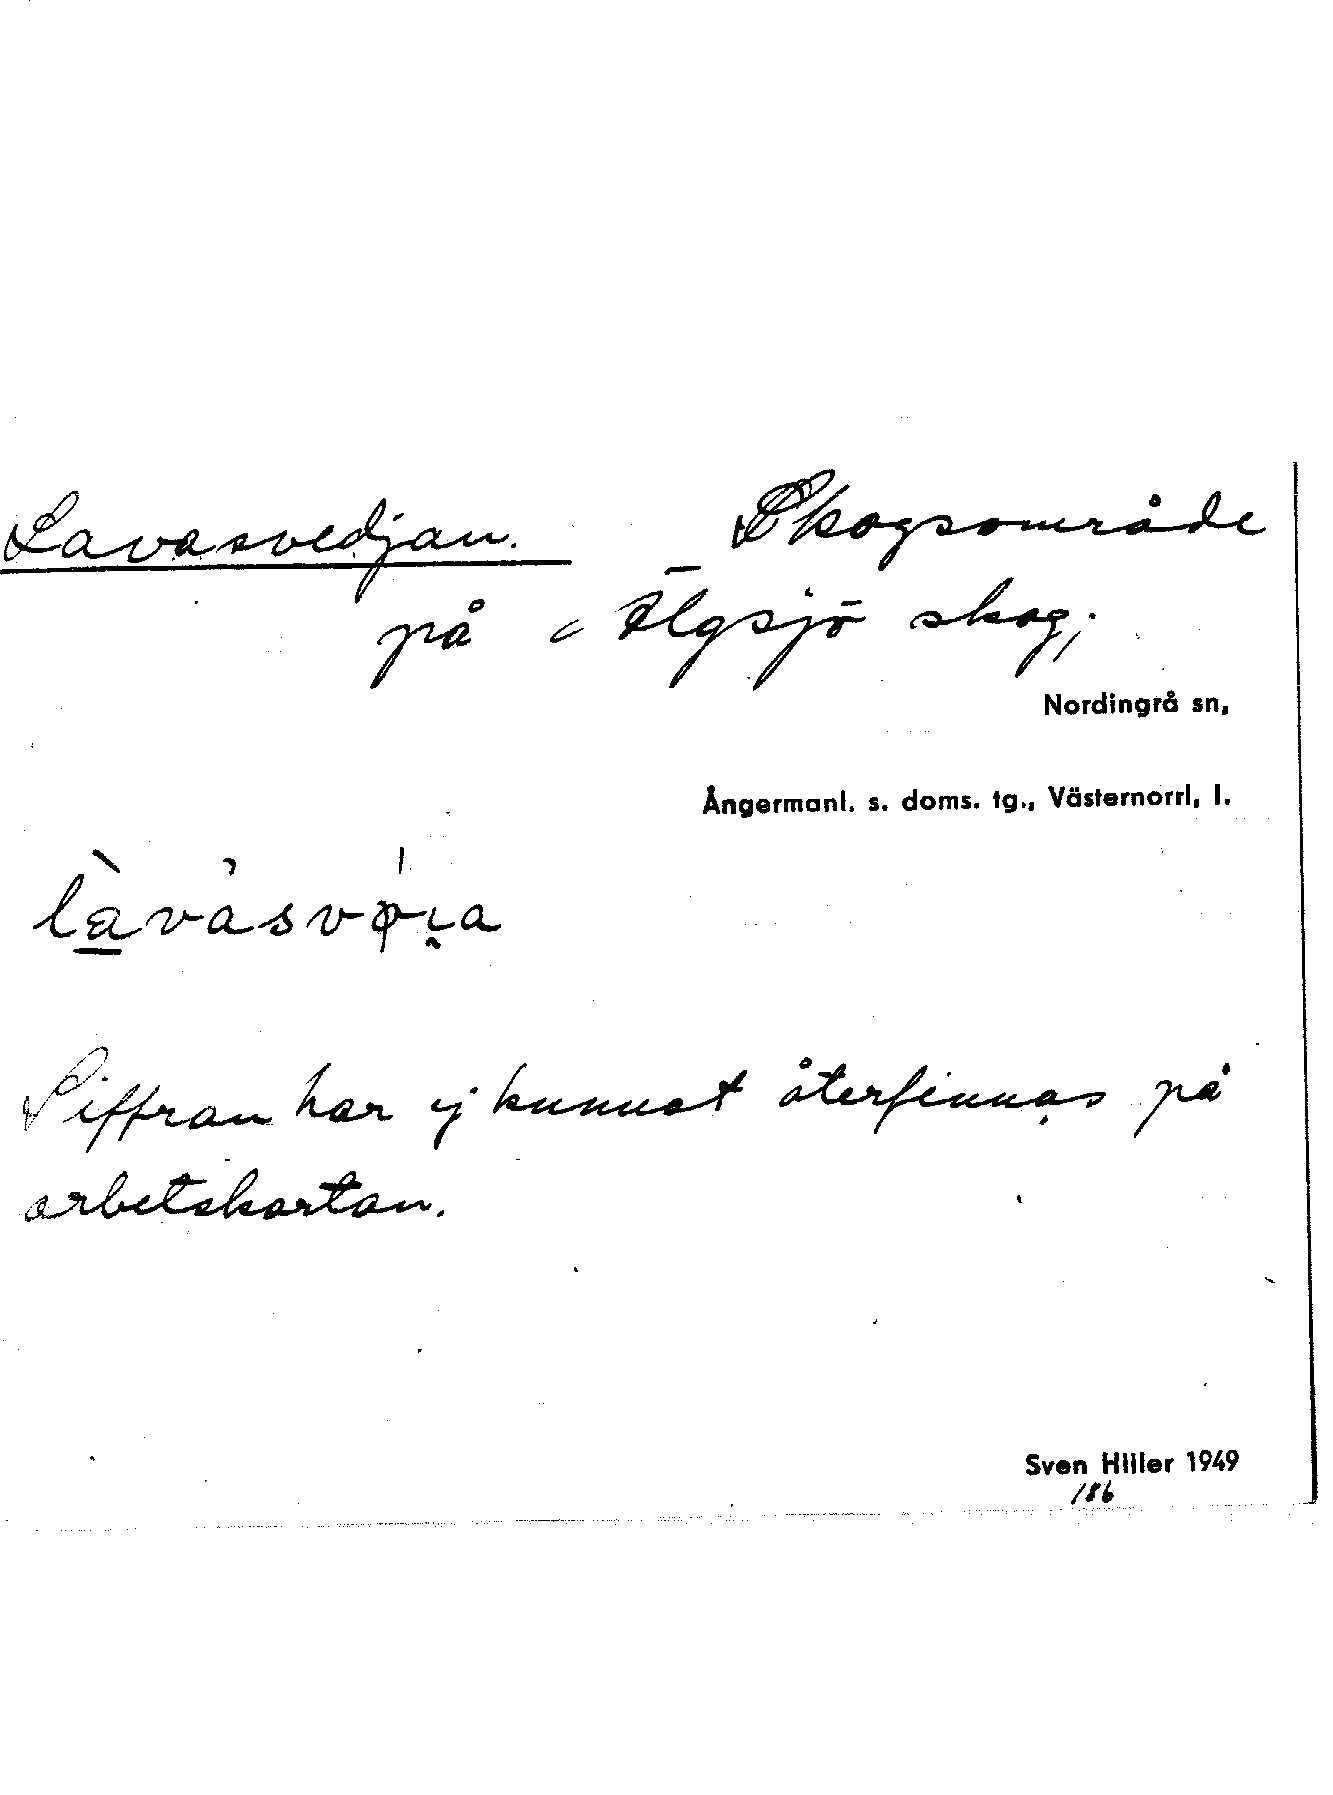 Lavasvedjan. Skogsområde
på Älgsjö skog;
Nordingrå sn,
Ångermanl. s. doms. tg., Västernorrl, l.
Siffran har ej kunnat återfinnas på
arbetskartan.
Sven Hiller 1949
186